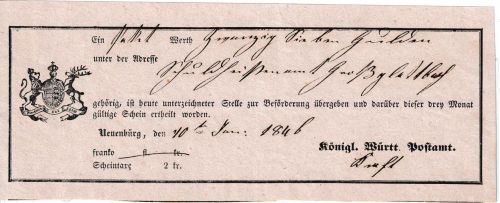 Ein Paket Werth Zwanzig Sieben Gulden
unter der Adresse
Schuldheißenamt Großglattbach
gehörig, ist heute unterzeichneter Stelle zur Beförderung übergeben und darüber dieser drey Monat
gültige Schein ertheilt worden.
Neuenbürg, den 10ten Jan: 1846
franko fl. kr.
Scheintaxe 2 kr.
Königl. Württ. Postamt.